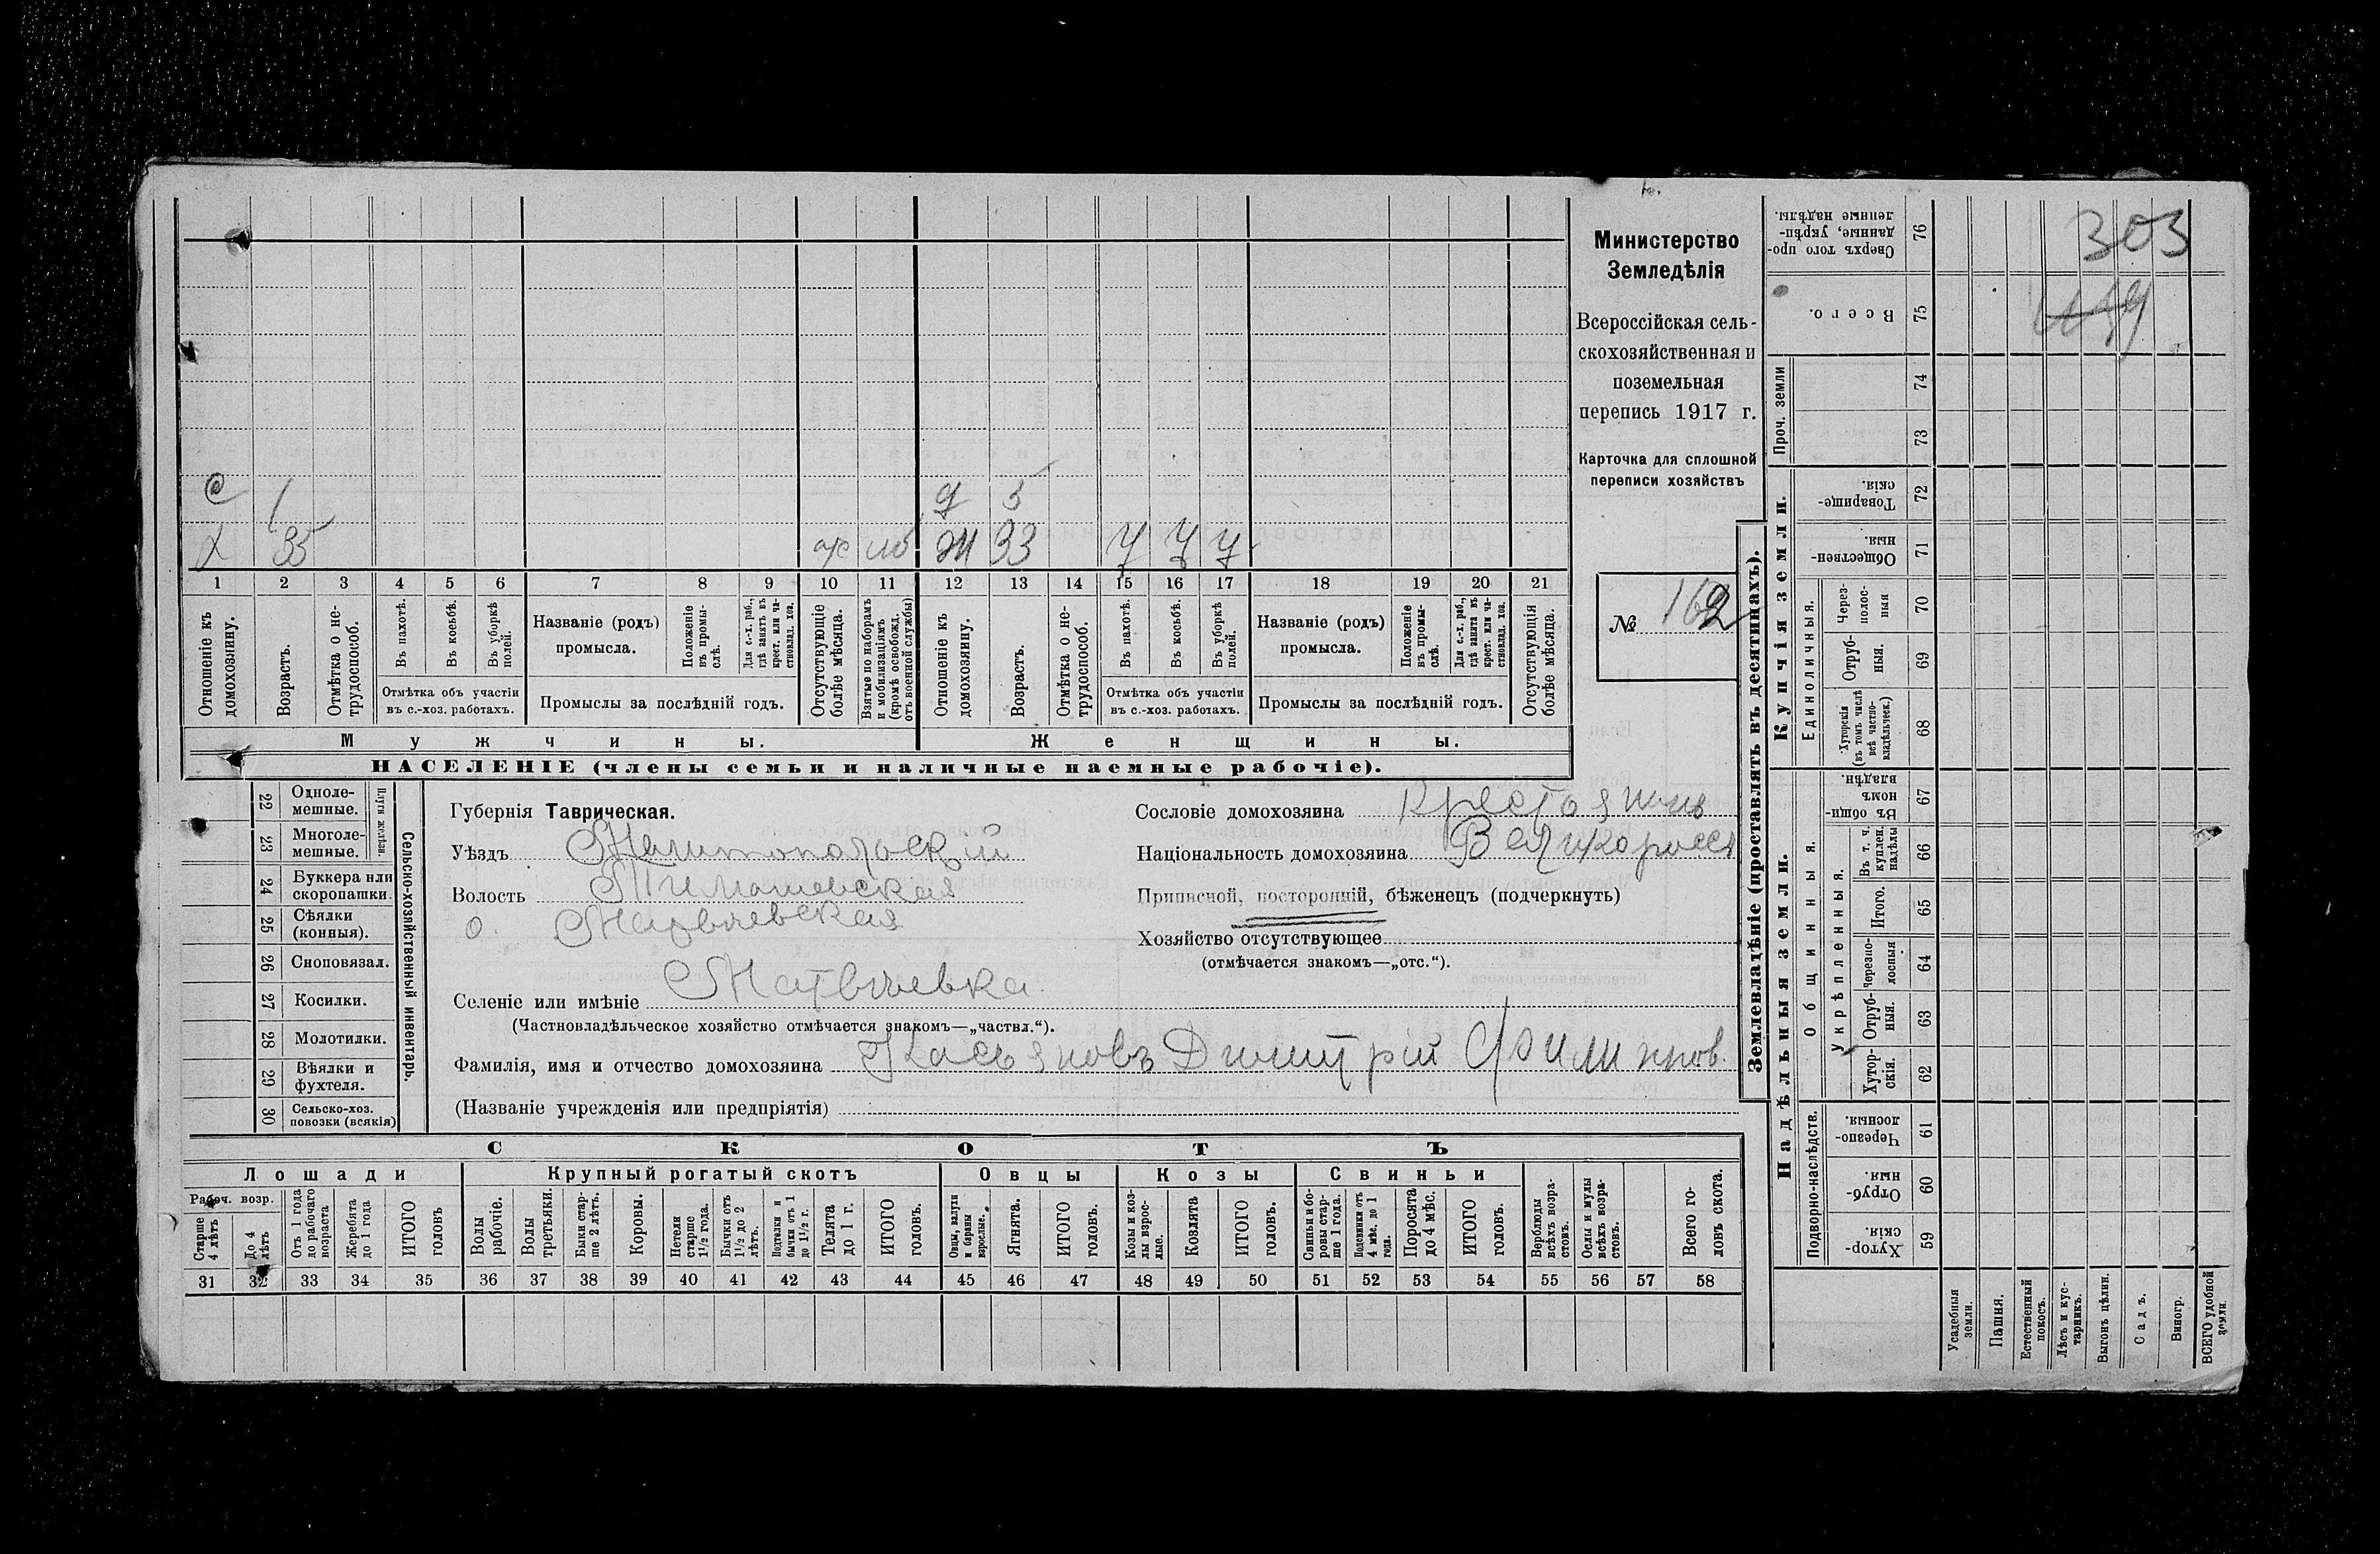 303
Министерство
Земледѣлія
Всероссійская сель-
скохозяйственная и
поземельная
перепись 1917 г.
Карточка для сплошной
переписи хозяйствъ
№ 162
с 1 д 5
х 35 ж 33 у у у
1 2 3 4 5 6 7 8 9 10 11 12 13 14 15 16 17 18 19 20 21
Отношеніе къ домохозяину.
Возрастъ.
Отмѣтка о не-трудоспособ.
Въ пахотѣ.
Въ косьбѣ.
Въ уборкѣ полей.
Отмѣтка объ участіи
въ с.-хоз. работахъ.
Названіе (родъ)
промысла.
Положеніе въ промы-слѣ.
Для с.-х. раб., гдѣ занятъ въ крест. или ча-стновлад. хоз.
Промыслы за послѣдній годъ.
Отсутствующіе болѣе мѣсяца.
Взятые по наборамъ и мобилизаціямъ (кромѣ освобожд. отъ военной службы)
Отношеніе къ домохозяину.
Возрастъ.
Отмѣтка о не-трудоспособ.
Въ пахотѣ.
Въ косьбѣ.
Въ уборкѣ полей.
Отмѣтка объ участіи
въ с.-хоз. работахъ.
Названіе (родъ)
промысла.
Положеніе въ промы-слѣ.
Для с.-х. раб., гдѣ занята въ крест. или ча-стновлад. хоз.
Промыслы за послѣдній годъ.
Отсутствующія болѣе мѣсяца.
Мужчины. Женщины.
НАСЕЛЕНІЕ (члены семьи и наличные наемные рабочіе).
Сельско-хозяйственный инвентарь.
Плуги желѣзн.
22 Одноле-мешные.
23 Многоле-мешные.
24 Буккера или скоропашки.
25 Сѣялки (конныя).
26 Сноповязал.
27 Косилки.
28 Молотилки.
29 Вѣялки и фухтеля.
30 Сельско-хоз. повозки (всякія)
Губернія Таврическая.
Уѣздъ Мелитопольскій
Волость Тимашевская
о. Матвѣевская
Селеніе или имѣніе Матвѣевка
(Частновладѣльческое хозяйство отмѣчается знакомъ—„частвл.“).
Фамилія, имя и отчество домохозяина Касьяновъ Димитрій Филиппов.
(Названіе учрежденія или предпріятія)
Сословіе домохозяина Крестьянинъ
Національность домохозяина Великороссъ
Приписной, посторонній, бѣженецъ (подчеркнуть)
Хозяйство отсутствующее
(отмѣчается знакомъ—„отс.“).
СКОТЪ
Лошади Крупный рогатый скотъ Овцы Козы Свиньи
Рабоч. возр.
Старше 4 лѣтъ
До 4 лѣтъ
Отъ 1 года до рабочаго возраста
Жеребята до 1 года
ИТОГО головъ
Волы рабочіе.
Волы третьяки.
Быки стар-ше 2 лѣтъ.
Коровы.
Нетели старше 1½ года.
Бычки отъ 1½ до 2 лѣтъ.
Подтелки и бычки отъ 1 до 1½ г.
Телята до 1 г.
ИТОГО головъ.
Овцы, валухи и бараны взрослые.
Ягнята.
ИТОГО головъ.
Козы и коз-лы взрос-лые.
Козлята
ИТОГО головъ.
Свиньи и бо-ровы стар-ше 1 года.
Подсвинки отъ 4 мѣс. до 1 года.
Поросята до 4 мѣс.
ИТОГО головъ.
Верблюды всѣхъ возра-стовъ.
Ослы и мулы всѣхъ возра-стовъ.
Всего го-ловъ скота.
31 32 33 34 35 36 37 38 39 40 41 42 43 44 45 46 47 48 49 50 51 52 53 54 55 56 57 58
Землевладѣніе (проставлять въ десятинахъ).
Надѣльныя земли. Купчія земли. Проч. земли
Подворно-наслѣдств.
Общинныя.
Укрѣпленныя.
Единоличныя.
59 Хутор-скія.
60 Отруб-ныя.
61 Черезпо-лосныя.
62 Хутор-скія.
63 Отруб-ныя.
64 Черезпо-лосныя
65 Итого.
66 Въ т. ч. куплен. надѣлы
67 Въ общи-номъ владѣн.
68 Хуторскія (въ томъ числѣ всѣ частно-владѣльческ.)
69 Отруб-ныя.
70 Через-полос-ныя
71 Обществен-ныя.
72 Товарище-скія.
73
74
75 Всего.
76 Сверхъ того про-данные, укрѣп-ленные надѣлы.
Усадебныя земли.
Пашня.
Естественный покосъ.
Лѣсъ и кус-тарникъ.
Выгонъ цѣлин.
Садъ.
Виногр.
ВСЕГО удобной земли.